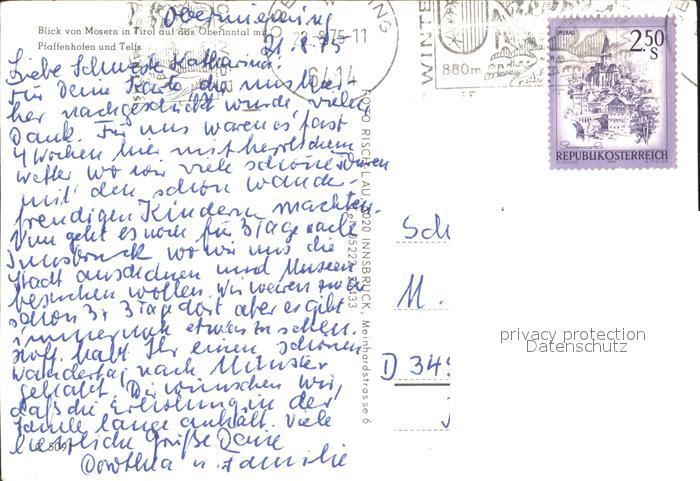 Obermieming
21.8.75
Blick von Mosern in Tirol auf das Oberinntal mit
Pfaffenhofen und Telfs
Liebe Schwester Katharina!
Für Deine Karte die uns hier
her nachgeschickt wurde, vielen
Dank. Für uns waren es fast
4 Wochen hier mit herrlichem
Wetter wo wir viele schöne Touren
mit den schon wander-
freudigen Kindern machten.
Nun geht es noch für 3 Tage nach
Innsbruck wo wir uns die
Stadt ansehen und Museen
besuchen wollen. Wir waren zwar
schon 3x 3 Tage dort aber es gibt
immer noch etwas zu sehen.
Hoff. habt Ihr einen schönen
Wandertag nach Münster
gehabt. Wir wünschen wir,
daß die Erholung in der
Familie lange anhält. Viele
herzliche Grüße Deine
Dorothea u. Familie
509
FOTO RISCH-LAU, 6020 INNSBRUCK, Meinhardstrasse 6
OBERMIEMING
2-8.75-11
6414
WINTER
880m
MURAU
2.50
S
REPUBLIK ÖSTERREICH
Sch
M.
D 349
privacy protection
Datenschutz